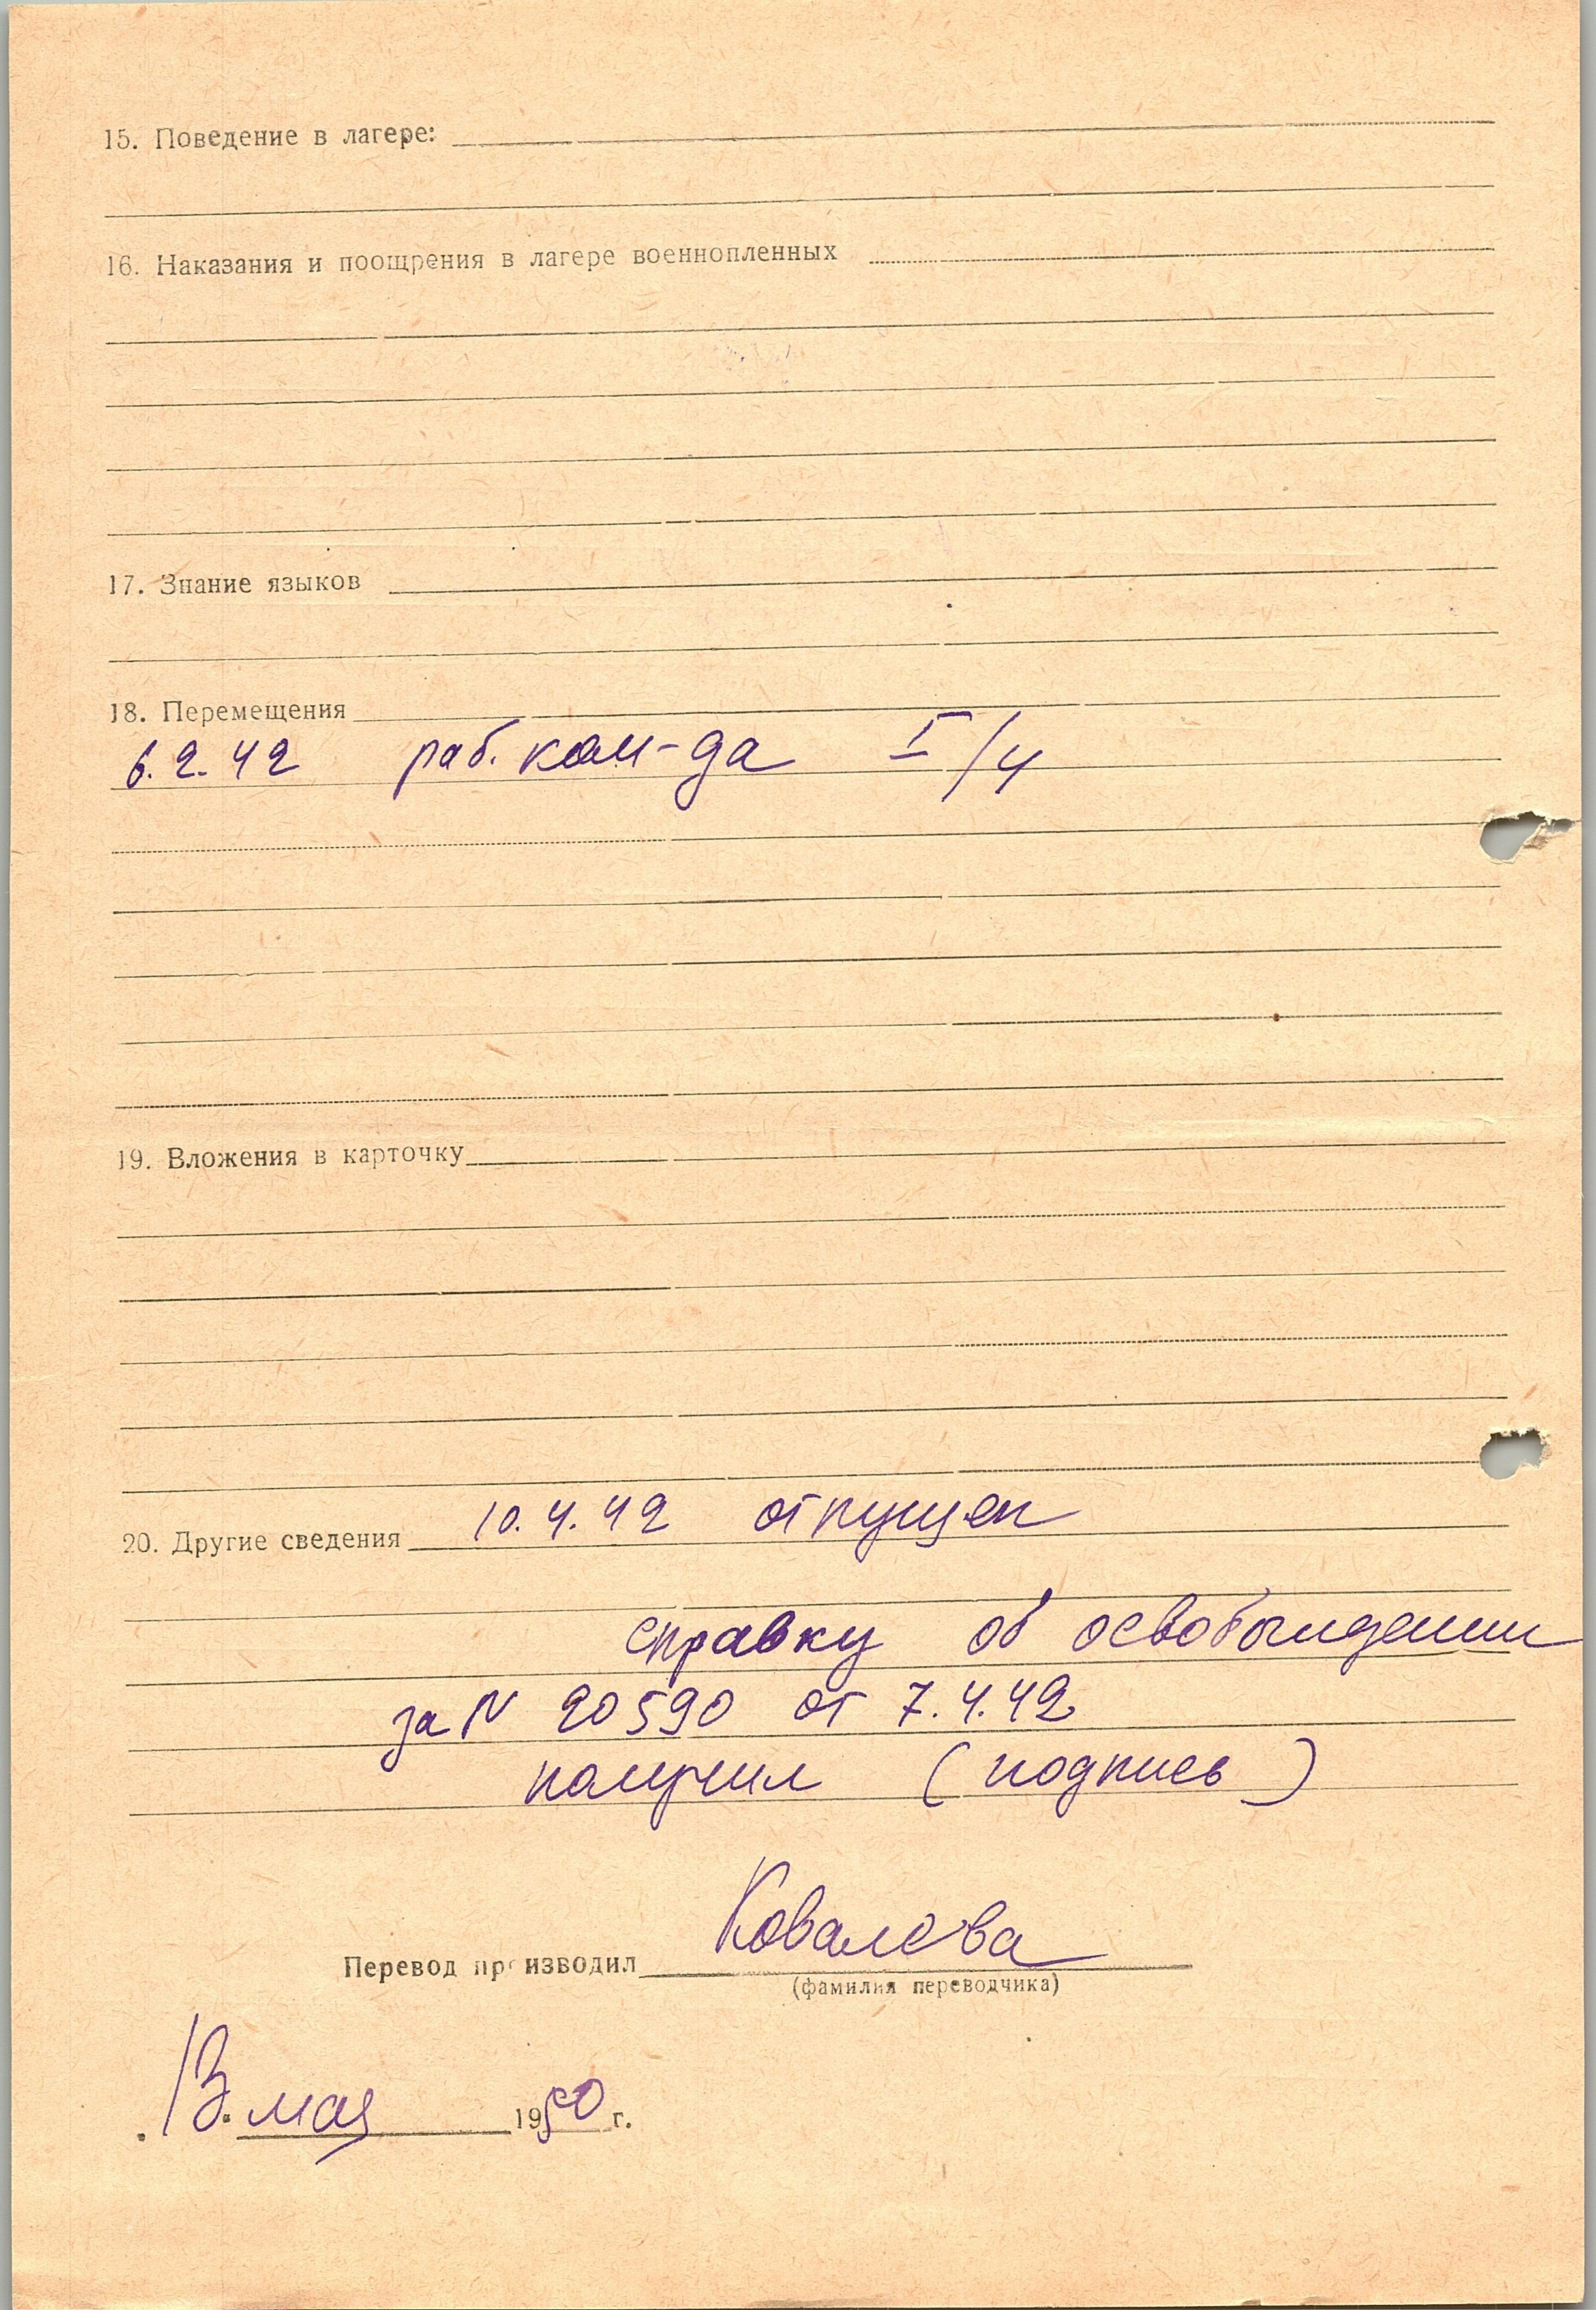 15. Поведение в лагере:
16. Наказания и поощрения в лагере военнопленных
17. Знание языков
18. Перемещения
6.2.42 раб. ком-да I/4
19. Вложения в карточку
20. Другие сведения 10.4.42 отпущен
справку об освобождении
за N 20590 от 7.4.42
получил (подпись)
Перевод производил Ковалева
(фамилия переводчика)
13. мая 1950 г.